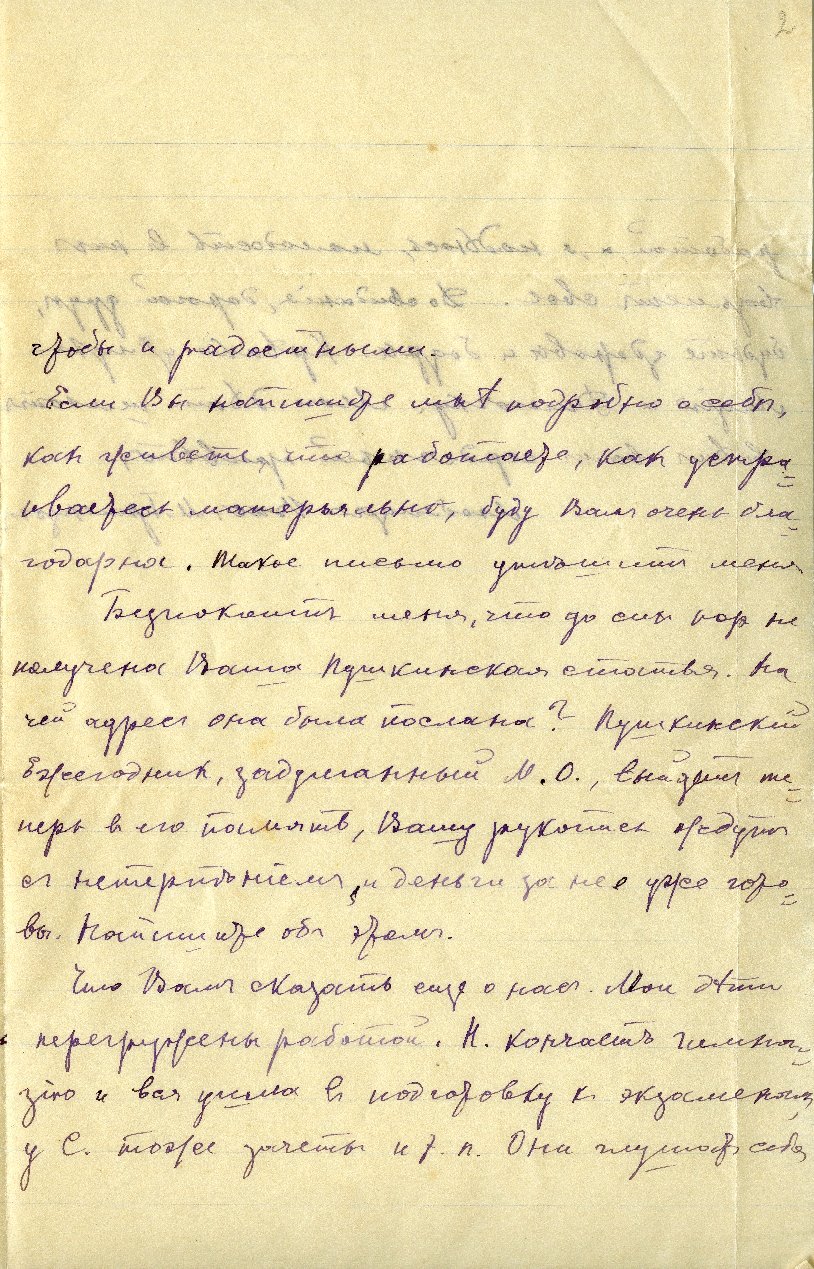 2
чтобы и радостными.
Если Вы напишите мнѣ подробно о себѣ,
как живете, что работаете, как устра-
иваетесь матерьяльно, буду Вамъ очень бла-
годарна. Такое письмо утѣшитъ меня
Безпокоитъ меня, что до сихъ пор не
получена Ваша Пушкинская статья. На
чей адресъ она была послана? Пушкинский
Ежегодник, задуманный М.О., выйдетъ те-
перь в его память, Вашу рукопись ждутъ
съ нетерпѣнiемъ, и деньги за нее уже гото-
вы. Напишите объ этомъ.
Что Вамъ сказать еще о насъ. Мои дѣти
перегружены работой. Н. кончаетъ гимна-
зiю и вся ушла в подготовку к экзаменамъ,
у С. тоже зачеты и т. п. Они глушатъ себя